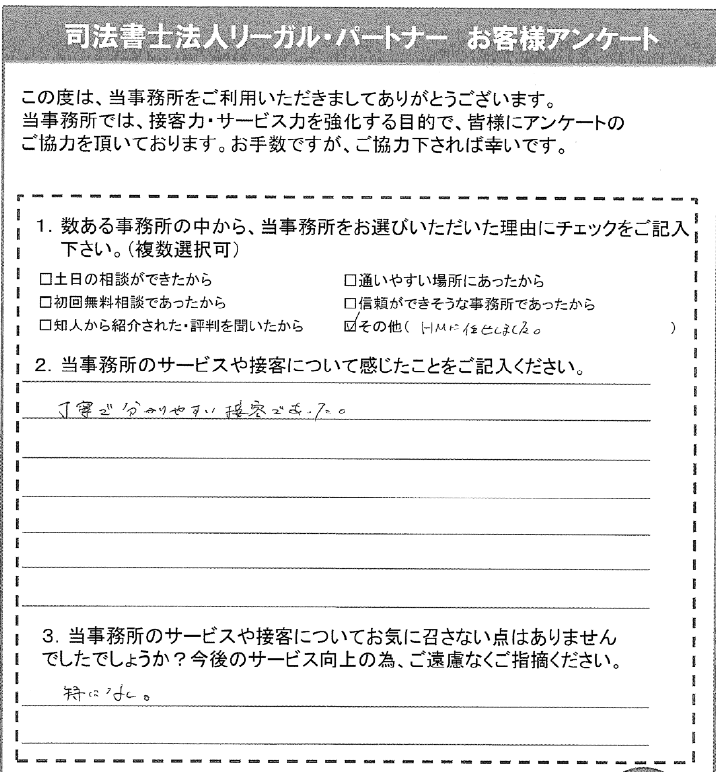 司法書士法人リーガル・パートナー お客様アンケート
この度は、当事務所をご利用いただきましてありがとうございます。
当事務所では、接客力・サービス力を強化する目的で、皆様にアンケートの
ご協力を頂いております。お手数ですが、ご協力下されば幸いです。
1. 数ある事務所の中から、当事務所をお選びいただいた理由にチェックをご記入
下さい。(複数選択可)
□土日の相談ができたから □通いやすい場所にあったから
□初回無料相談であったから □信頼ができそうな事務所であったから
□知人から紹介された・評判を聞いたから ☑その他( HMに任せました。 )
2. 当事務所のサービスや接客について感じたことをご記入ください。
丁寧で分かりやすい接客であった。
3. 当事務所のサービスや接客についてお気に召さない点はありません
でしたでしょうか?今後のサービス向上の為、ご遠慮なくご指摘ください。
特になし。